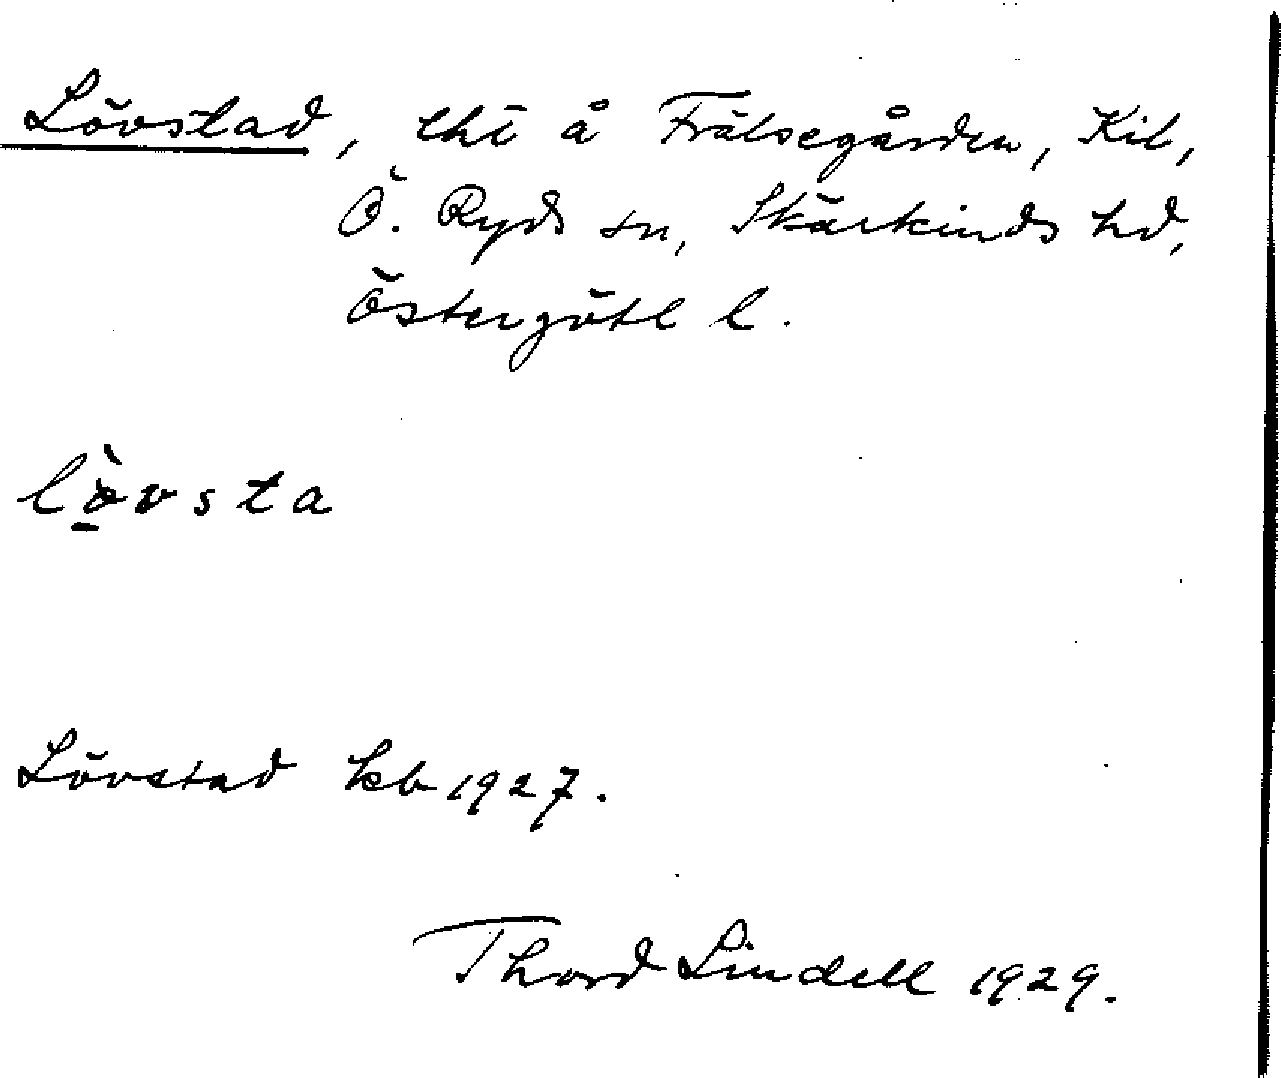 Lövstad, lht å Frälsegården, Kil,
Ö. Ryds sn, Skärkinds hd,
Östergötl l.
lövsta
Lövstad kb 1927.
Thord Lindell 1929.